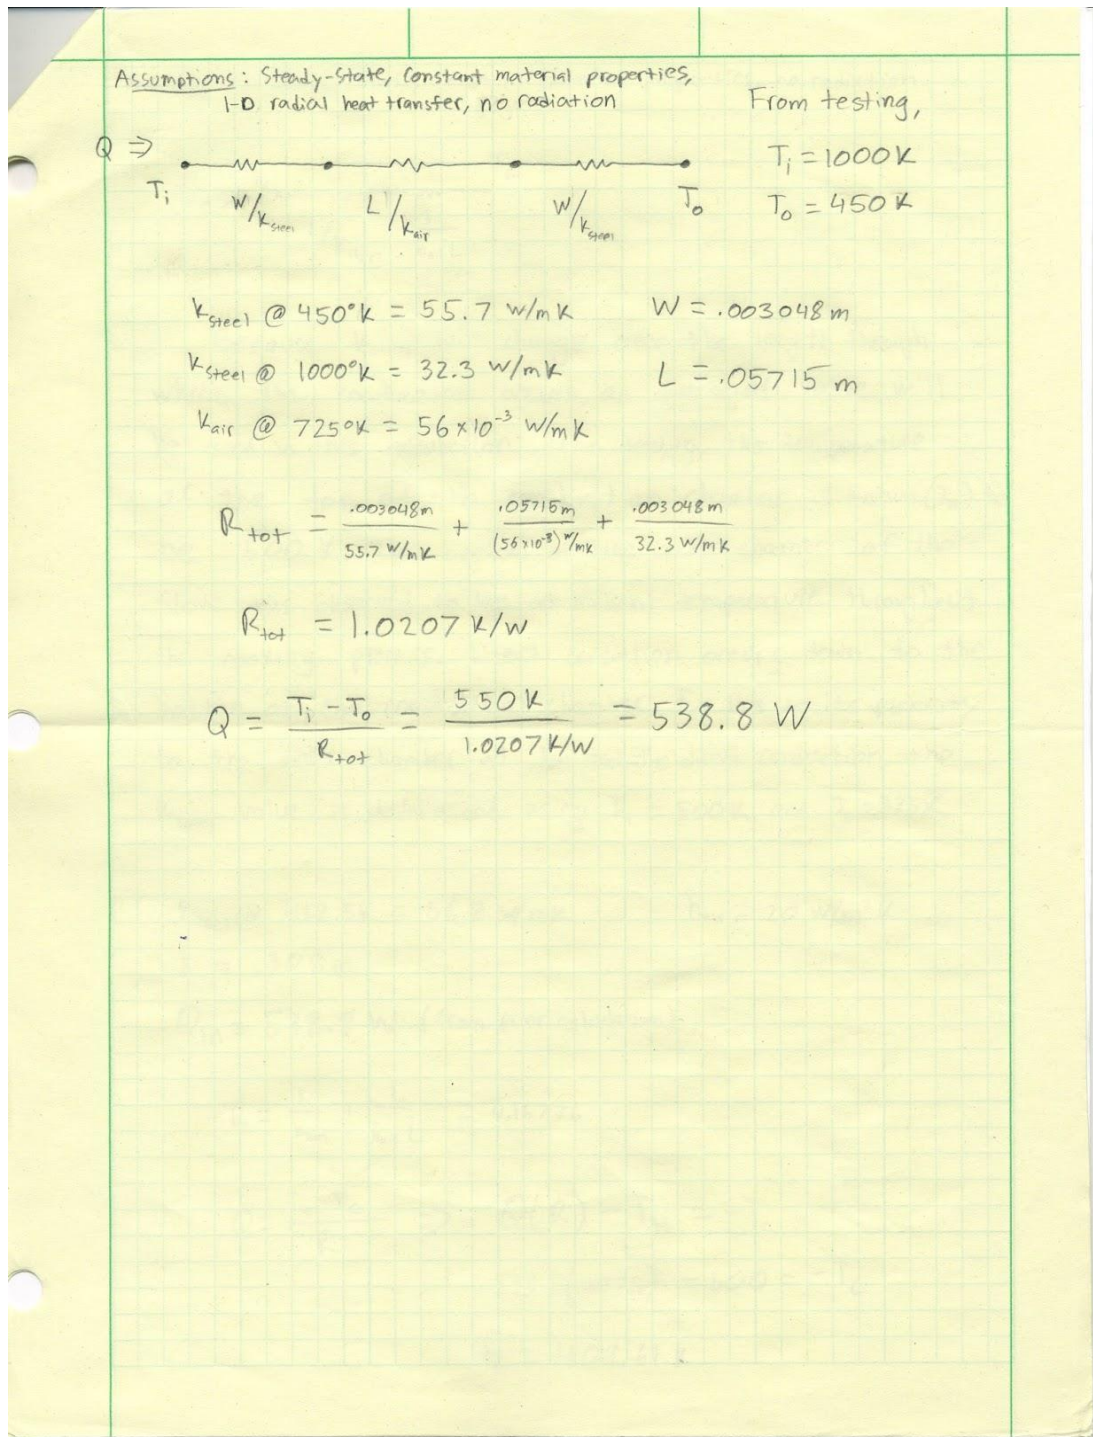 Assumptions: Steady-State, Constant material properties,
1-D radial heat transfer, no radiation
From testing,
Q ⇒
T_i = 1000 K
T_i W/k_steel L/k_air W/k_steel T_o
T_o = 450 K
k_steel @ 450°K = 55.7 W/mK W = .003048 m
k_steel @ 1000°K = 32.3 W/mK L = .05715 m
k_air @ 725°K = 56×10^-3 W/mK
R_tot = .003048m / 55.7 W/mK + .05715m / (56×10^-3) W/mK + .003048m / 32.3 W/mK
R_tot = 1.0207 K/W
Q = T_i - T_o / R_tot = 550K / 1.0207 K/W = 538.8 W